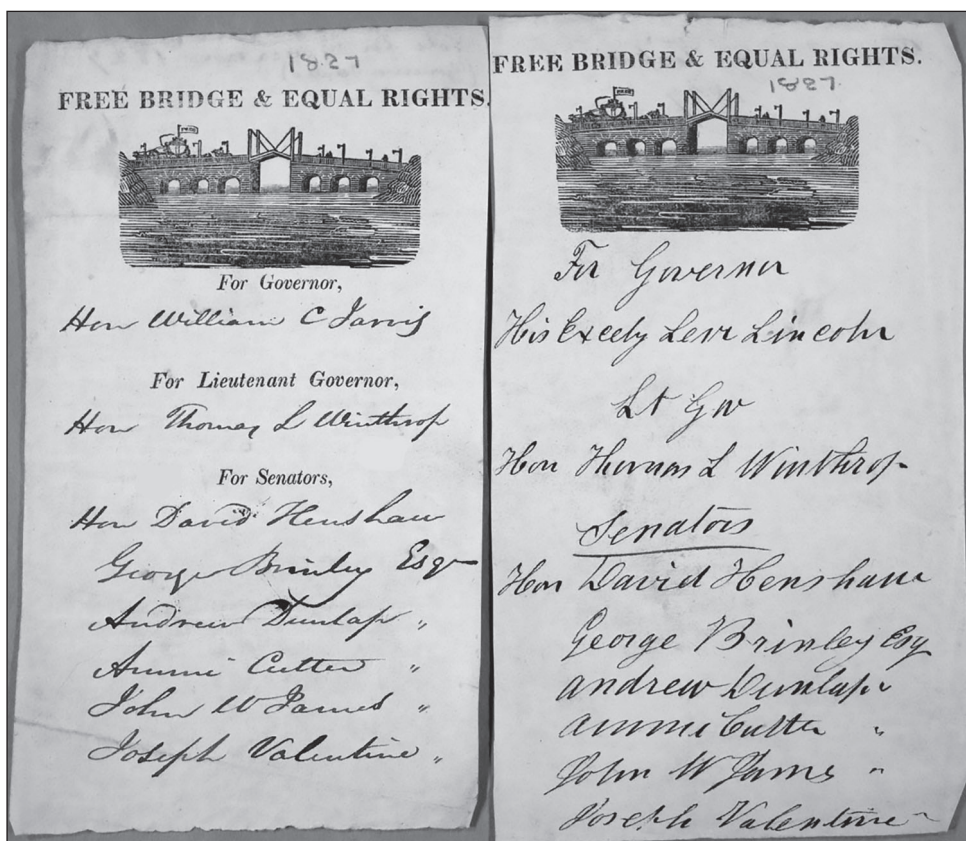 1827
FREE BRIDGE & EQUAL RIGHTS.
For Governor,
Hon William C Jarvis
For Lieutenant Governor,
Hon Thomas L Winthrop
For Senators,
Hon David Henshaw
George Brinley Esqr
Andrew Dunlap "
Ammi Cutter "
John W James "
Joseph Valentine "
FREE BRIDGE & EQUAL RIGHTS.
1827.
For Governor
His Excely Levi Lincoln
Lt Gov
Hon Thomas L Winthrop
Senators
Hon David Henshaw
George Brinley Esq
Andrew Dunlap "
Ammi Cutter "
John W James "
Joseph Valentine "